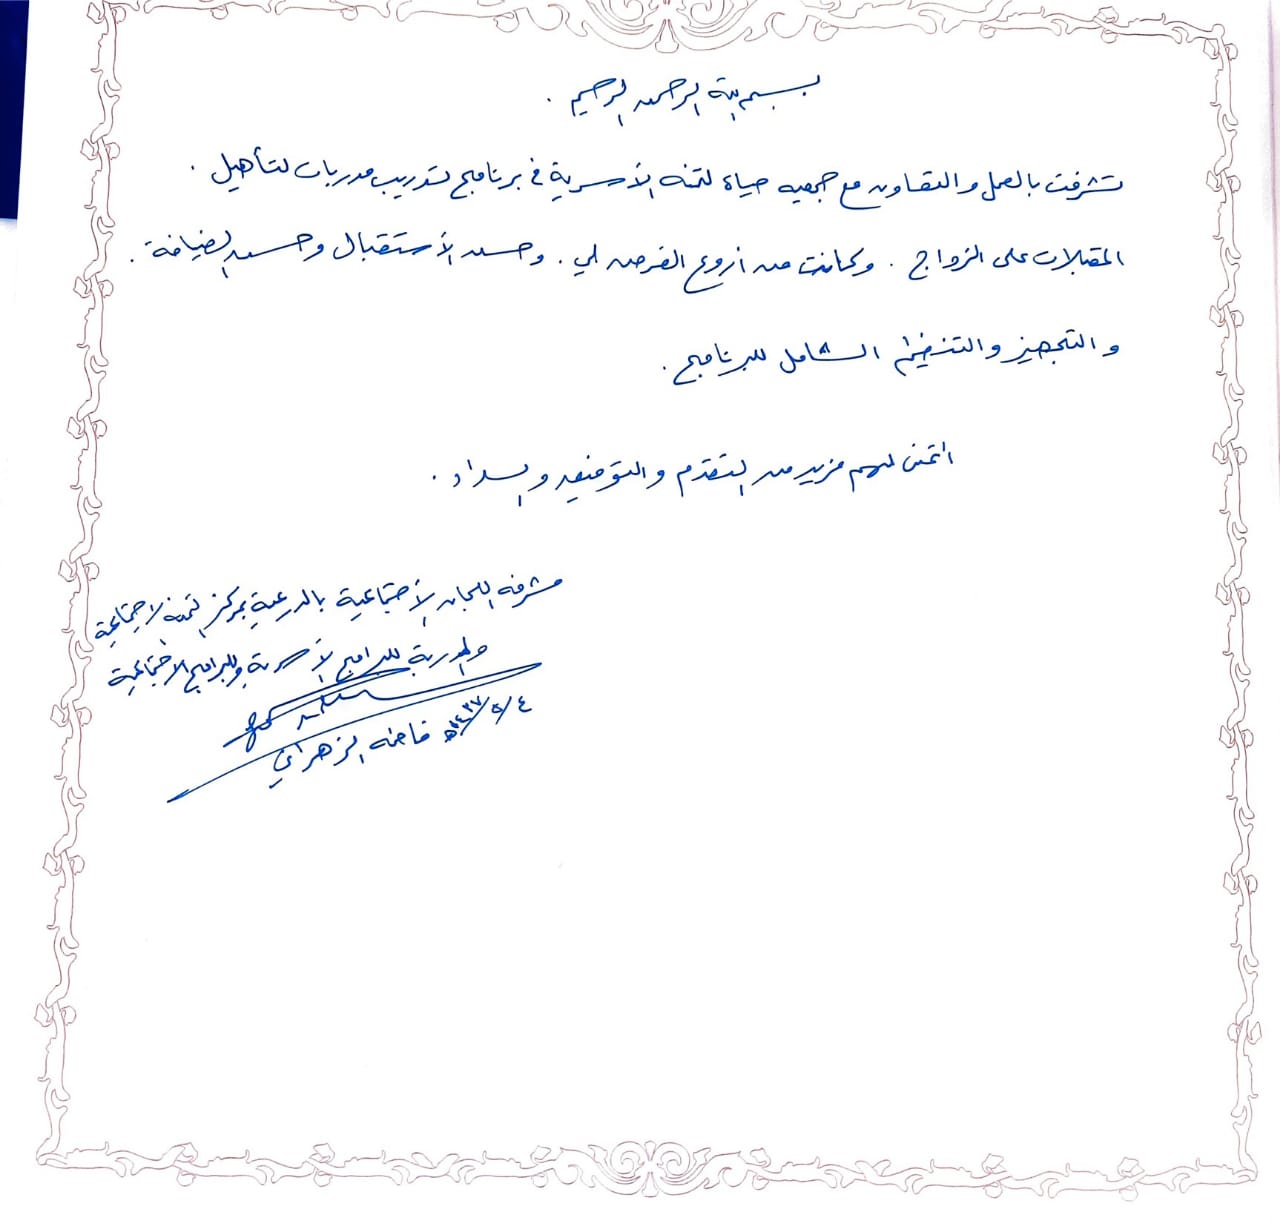 بسم الله الرحمن الرحيم .
تشرفت بالعمل والتعاون مع جمعيه حياة لتنمه الأسرية في برنامج تدريب مدربات لتأهيل .
المقبلات على الزواج . وكانت من أروع الفرص لي . وحسن الأستقبال وحسن الضيافة .
والتجهيز والتنظيم الشامل للبرنامج .
اتمنى لهم مزيد من التقدم والتوفيق والسداد .
مشرفه اللجان الأجتماعية بالدرعية بمركز التنمية الاجتماعية
والمدربة للبرامج الأسرية والبرامج الاجتماعية
فاطمه الزهراني ٤/٥/١٤٣٧هـ